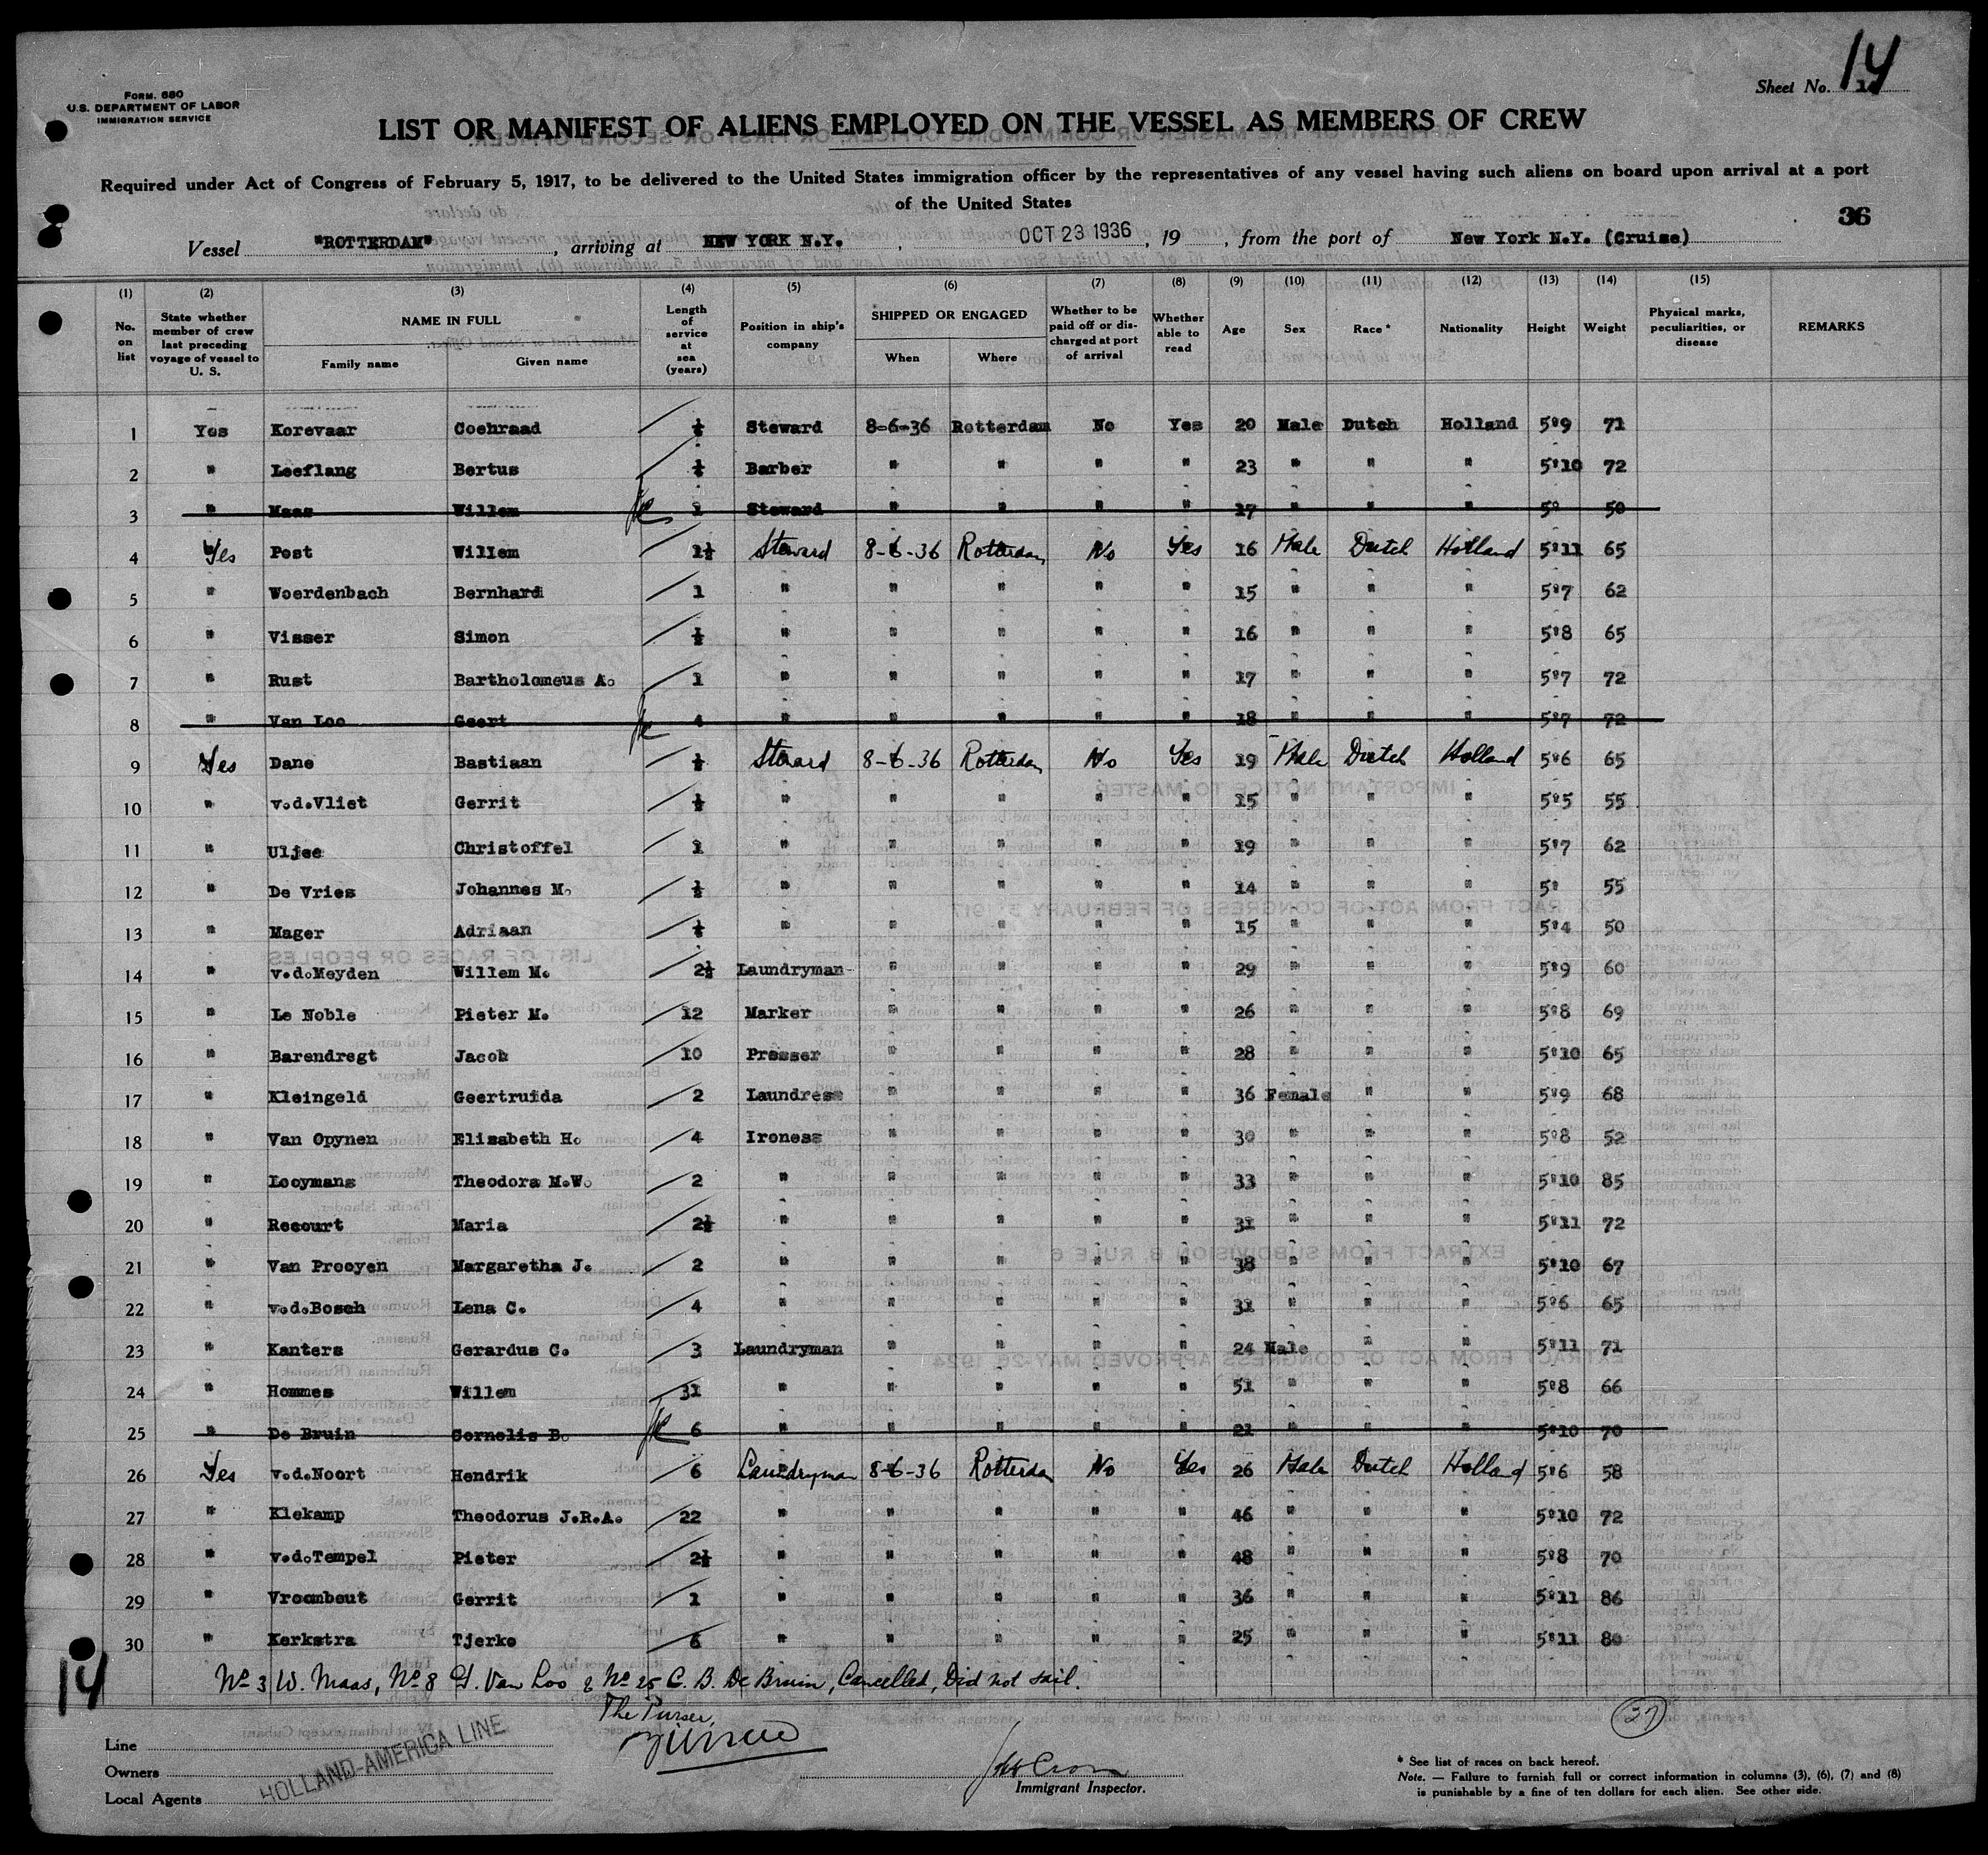 Form. 680
U.S. DEPARTMENT OF LABOR
IMMIGRATION SERVICE
Sheet No. 14
LIST OR MANIFEST OF ALIENS EMPLOYED ON THE VESSEL AS MEMBERS OF CREW
Required under Act of Congress of February 5, 1917, to be delivered to the United States immigration officer by the representatives of any vessel having such aliens on board upon arrival at a port
of the United States
36
Vessel "ROTTERDAM", arriving at NEW YORK N.Y., OCT 23 1936, 19 , from the port of New York N.Y. (Cruise)
(1) (2) (3) (4) (5) (6) (7) (8) (9) (10) (11) (12) (13) (14) (15)
No. on list State whether member of crew last preceding voyage of vessel to U. S. NAME IN FULL Family name Given name Length of service at sea (years) Position in ship's company SHIPPED OR ENGAGED When Where Whether to be paid off or discharged at port of arrival Whether able to read Age Sex Race* Nationality Height Weight Physical marks, peculiarities, or disease REMARKS
1 Yes Korevaar Coehraad ½ Steward 8-6-36 Rotterdam No Yes 20 Male Dutch Holland 5'9 71
2 " Leeflang Bertus ½ Barber " " " " 23 " " " 5'10 72
3 " Maas Willem 1 Steward " " " " 17 " " " 5' 50
4 Yes Post Willem 1½ Steward 8-6-36 Rotterdam No Yes 16 Male Dutch Holland 5'11 65
5 " Woerdenbach Bernhard 1 " " " " " 15 " " " 5'7 62
6 " Visser Simon ½ " " " " " 16 " " " 5'8 65
7 " Rust Bartholomeus A. 1 " " " " " 17 " " " 5'7 72
8 " Van Loo Geert 4 " " " " " 18 " " " 5'7 72
9 Yes Dane Bastiaan ½ Steward 8-6-36 Rotterdam No Yes 19 Male Dutch Holland 5'6 65
10 " v.d.Vliet Gerrit ½ " " " " " 15 " " " 5'5 55
11 " Uljee Christoffel 1 " " " " " 19 " " " 5'7 62
12 " De Vries Johannes M. ½ " " " " " 14 " " " 5' 55
13 " Mager Adriaan ½ " " " " " 15 " " " 5'4 50
14 " v.d.Meyden Willem M. 2½ Laundryman " " " " 29 " " " 5'9 60
15 " Le Noble Pieter M. 12 Marker " " " " 26 " " " 5'8 69
16 " Barendregt Jacob 10 Presser " " " " 28 " " " 5'10 65
17 " Kleingeld Geertruida 2 Laundress " " " " 36 Female " " 5'9 68
18 " Van Opynen Elisabeth H. 4 Ironess " " " " 30 " " " 5'8 52
19 " Looymans Theodora M.W. 2 " " " " " 33 " " " 5'10 85
20 " Recourt Maria 2½ " " " " " 31 " " " 5'11 72
21 " Van Prooyen Margaretha J. 2 " " " " " 38 " " " 5'10 67
22 " v.d.Bosch Lena C. 4 " " " " " 31 " " " 5'6 65
23 " Kanters Gerardus C. 3 Laundryman " " " " 24 Male " " 5'11 71
24 " Hommes Willem 31 " " " " " 51 " " " 5'8 66
25 " De Bruin Cornelis B. 6 " " " " " 21 " " " 5'10 70
26 Yes v.d.Noort Hendrik 6 Laundryman 8-6-36 Rotterdam No Yes 26 Male Dutch Holland 5'6 58
27 " Klekamp Theodorus J.R.A. 22 " " " " " 46 " " " 5'10 72
28 " v.d.Tempel Pieter 2½ " " " " " 48 " " " 5'8 70
29 " Vroombout Gerrit 1 " " " " " 36 " " " 5'11 86
30 " Kerkstra Tjerke 6 " " " " " 25 " " " 5'11 80
14 No 3 W. Maas, No 8 G. Van Loo & No 25 C. B. De Bruin, Cancelled, Did not sail.
The Purser,
37
Line
Owners
Local Agents
HOLLAND-AMERICA LINE
Immigrant Inspector.
* See list of races on back hereof.
Note. — Failure to furnish full or correct information in columns (3), (6), (7) and (8)
is punishable by a fine of ten dollars for each alien. See other side.